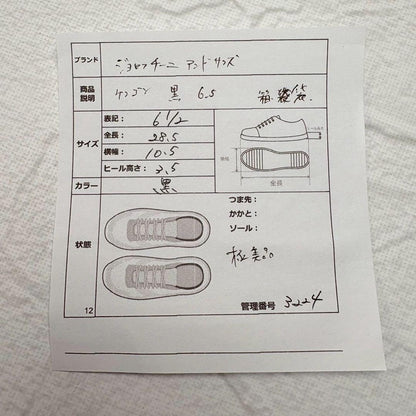 ブランド ジョセフチーニ アンド サンズ
商品説明 ケンゴン 黒 6.5 箱 袋
サイズ
表記: 6 1/2
全長: 28.5
横幅: 10.5
ヒール高さ: 3.5
ヒール高さ
横幅
全長
カラー 黒
状態
つま先:
かかと:
ソール:
極美品
12
管理番号 3224